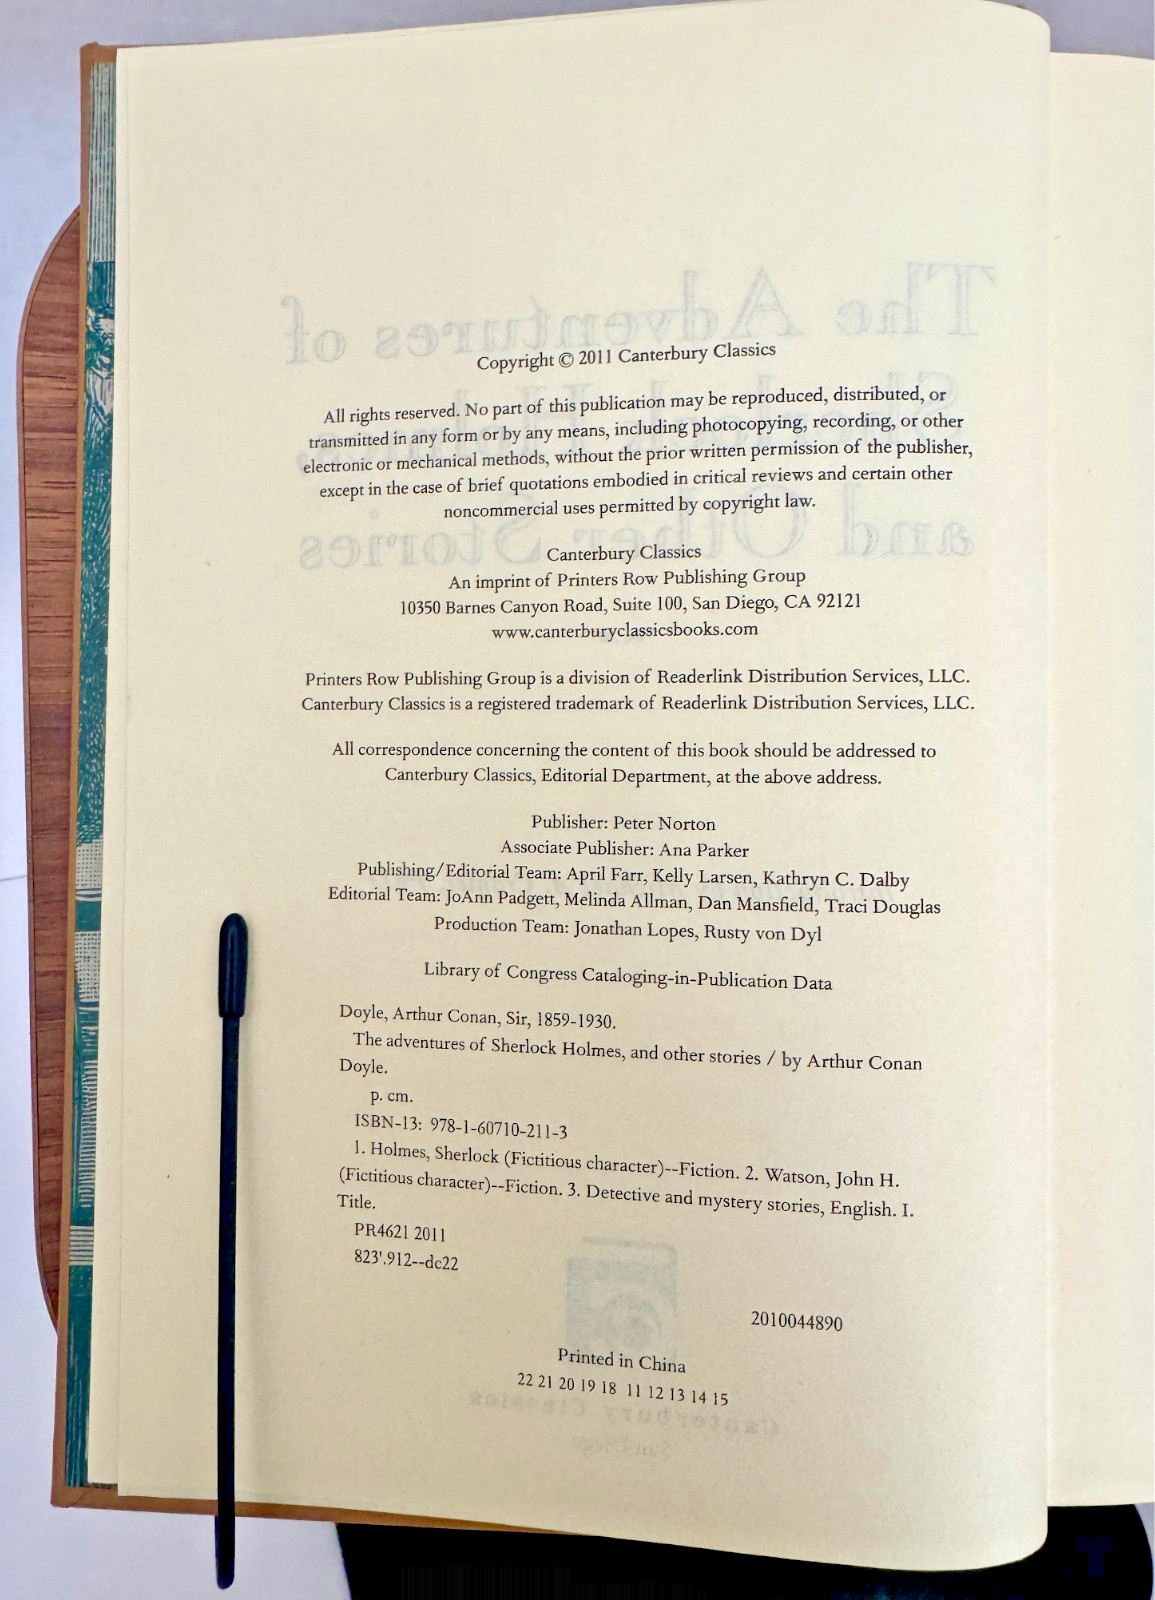 Copyright © 2011 Canterbury Classics
All rights reserved. No part of this publication may be reproduced, distributed, or
transmitted in any form or by any means, including photocopying, recording, or other
electronic or mechanical methods, without the prior written permission of the publisher,
except in the case of brief quotations embodied in critical reviews and certain other
noncommercial uses permitted by copyright law.
Canterbury Classics
An imprint of Printers Row Publishing Group
10350 Barnes Canyon Road, Suite 100, San Diego, CA 92121
www.canterburyclassicsbooks.com
Printers Row Publishing Group is a division of Readerlink Distribution Services, LLC.
Canterbury Classics is a registered trademark of Readerlink Distribution Services, LLC.
All correspondence concerning the content of this book should be addressed to
Canterbury Classics, Editorial Department, at the above address.
Publisher: Peter Norton
Associate Publisher: Ana Parker
Publishing/Editorial Team: April Farr, Kelly Larsen, Kathryn C. Dalby
Editorial Team: JoAnn Padgett, Melinda Allman, Dan Mansfield, Traci Douglas
Production Team: Jonathan Lopes, Rusty von Dyl
Library of Congress Cataloging-in-Publication Data
Doyle, Arthur Conan, Sir, 1859-1930.
The adventures of Sherlock Holmes, and other stories / by Arthur Conan
Doyle.
p. cm.
ISBN-13: 978-1-60710-211-3
1. Holmes, Sherlock (Fictitious character)--Fiction. 2. Watson, John H.
(Fictitious character)--Fiction. 3. Detective and mystery stories, English. I.
Title.
PR4621 2011
823'.912--dc22
2010044890
Printed in China
22 21 20 19 18 11 12 13 14 15